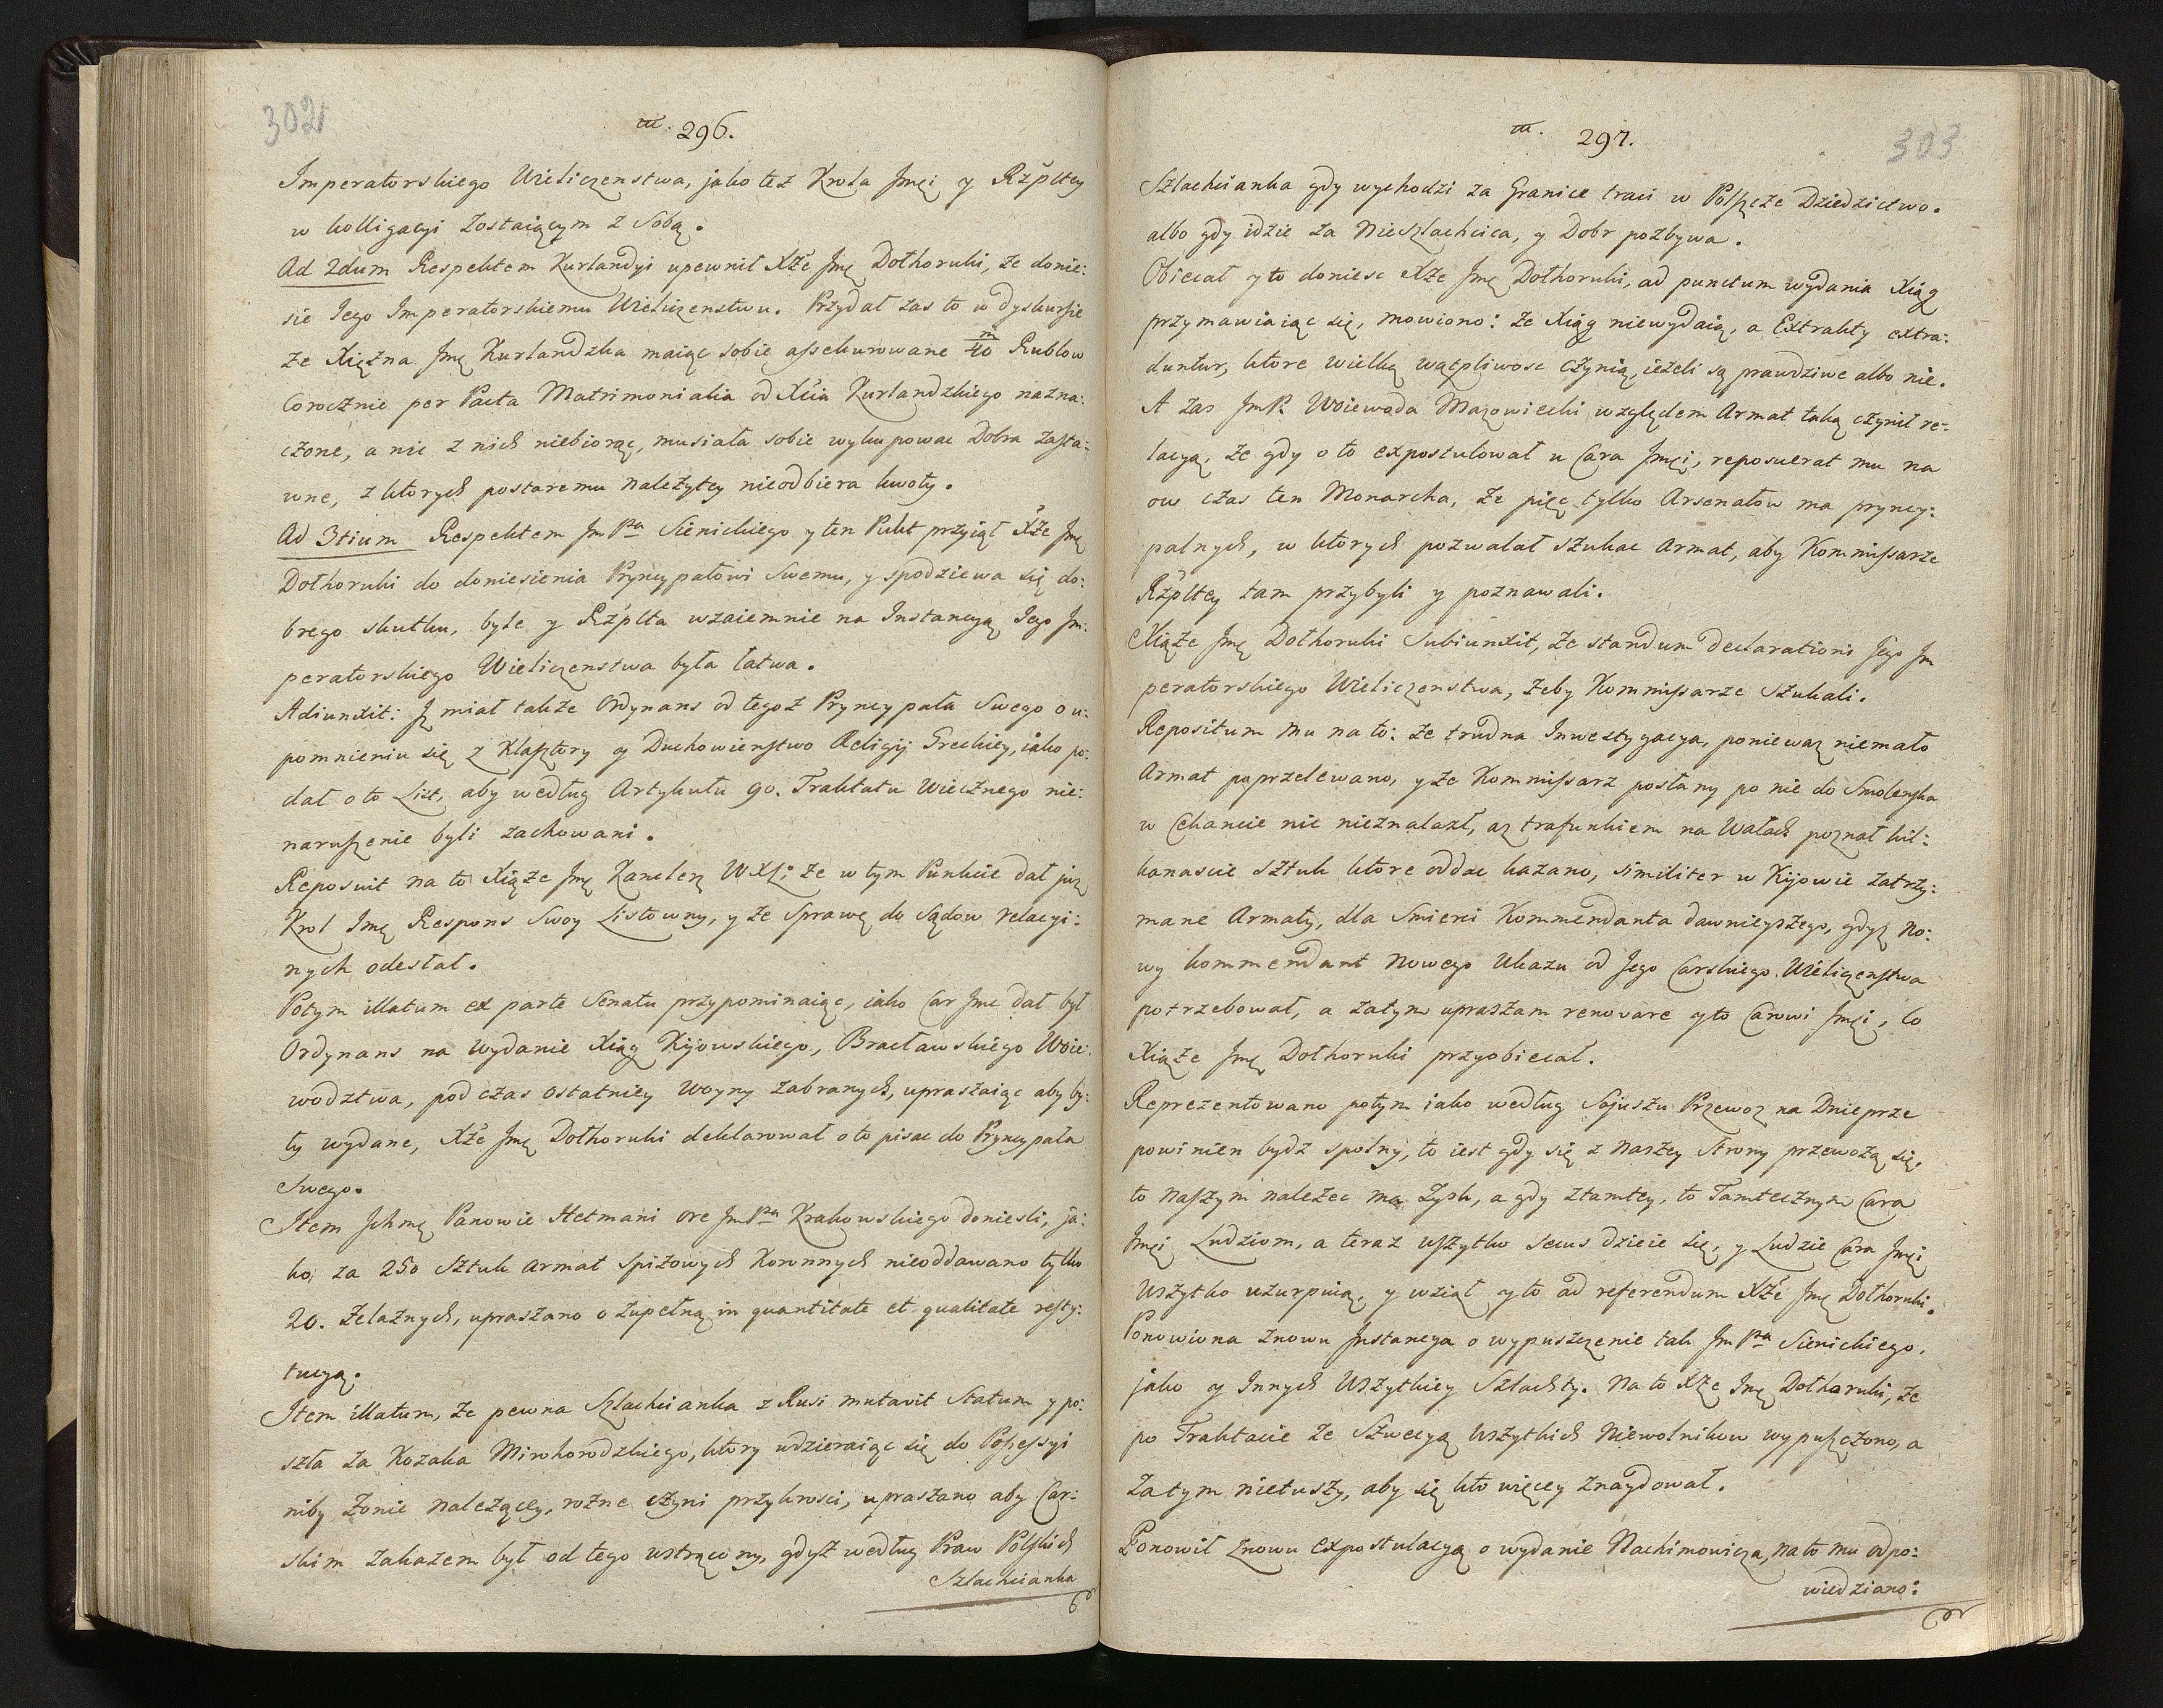 302
m. 296.
Imperatorskiego Wieliczenstwa, jako też Krola Jmci y Rzpltey
w kolligacyi zostaiącym z Sobą.
Ad 2dum Respektem Kurlandyi upewnił Xże Jmę Dołhoruki, że donie:
sie Jego Imperatorskiemu Wieliczenstwu. Przydał zas to w dyskursie
że Xiężna Jmę Kurlandzka maiąc sobie assekurowane m/40 Rublow
corocznie per Pacta Matrimonialia od Xcia Kurlandzkiego nazna:
czone, a nic z nich niebiorąc, musiała sobie wykupowac Dobra zasta:
wne, z ktorych postaremu należytey nieodbiera kwoty.
Ad 3tium Respektem Jm Pa Sienickiego y ten Pukt przyiął Xże Jmę
Dołhoruki do doniesienia Pryncypałowi Swemu, y spodziewa się do:
brego skutku, byle y Rzplta wzaiemnie na Instancyą Jego Im:
peratorskiego Wieliczenstwa była łatwa.
Adiunxit: Jż miał także Ordynans od tegoż Pryncypała Swego o u:
pomnieniu się z Klasztory y Duchowienstwo Religij Greckiey, iako po:
dał o to List, aby według Artykułu 90. Traktatu Wiecznego nie:
naruszenie byli zachowani.
Reposuit na to Xiąże Jmę Kanclerz WXL: że w tym Punkcie dał już
Krol Jmę Respons Swoy Listowny, y że Sprawę do Sądow relacyi:
nych odesłał.
Potym illatum ex parte Senatu przypominaiąc, iako Car Jmc dał był
Ordynans na wydanie Xiąg Kijowskiego, Bracławskiego Woie:
wodztwa, podczas ostatniey Woyny zabranych, upraszaiąc aby by:
ły wydane, Xże Jmę Dołhoruki deklarował o to pisac do Pryncypała
Swego.
Item Jchmę Panowie Hetmani ore Jm Pa Krakowskiego doniesli, ja:
ko, za 250 Sztuk Armat Spiżowych Koronnych nieoddawano tylko
20. Żelaznych, upraszano o zupełną in quantitate et qualitate resty:
tucyą.
Item illatum, że pewna Szlachcianka z Rusi mutavit Statum y po:
szła za Kozaka Mirohorodzkiego, ktory udzieraiąc się do Possessyi
niby Żonie należącey, rożne czyni przykrosci, upraszano aby Car:
skim zakazem był od tego wstrącony, gdyż według Praw Polskich
Szlachcianka
m. 297.
303
Szlachcianka gdy wychodzi za Granice traci w Polszcze Dziedzictwo.
albo gdy idzie za Nieszlachcica, y Dobr pozbywa.
Obiecał y to doniesc Xże Jmę Dołhoruki, ad punctum wydania Xiąg
przymawiaiąc się, mowiono: że Xiąg niewydaią, a Extrakty extra:
duntur, ktore wielką wątpliwosc czynią, ieżeli są prawdziwe albo nie.
A zas JmP. Woiewoda Mazowiecki względem Armat taką czynił re:
lacyą, że gdy o to expostulował u Cara Jmci, reposuerat mu na
ow czas ten Monarcha, że pięc tylko Arsenałow ma pryncy:
palnych, w ktorych pozwalał szukac Armat, aby Kommissarze
Rzpltey tam przybyli y poznawali.
Xiąże Jmę Dołhoruki Subiunxit, że standum declarationi Jego Im
peratorskiego Wieliczenstwa, żeby Kommissarze szukali.
Repositum mu na to: że trudna Inwestygacya, poniewaz niemało
Armat poprzelewano, y że Kommissarz posłany po nie do Smolenska
w Chancie nic nieznalazł, az trafunkiem na Wałach poznał kil:
kanascie sztuk ktore oddac kazano, similiter w Kijowie zatrzy:
mane Armaty, dla Smierci Kommendanta dawnieyszego, gdyż no:
wy kommendant Nowego Ukazu od Jego Carskiego Wieliczenstwa
potrzebował, a zatym upraszam renovare y to Carowi Jmci, co
Xiąże Jmę Dołhoruki przyobiecał.
Reprezentowano potym iako według Sojuszu Przewoz na Dnieprze
powinien bydz spolny, to iest gdy się z naszey strony przewożą się,
to naszym należec ma zysk, a gdy ztamtey, to Tamtecznym Cara
Jmci Ludziom, a teraz wszytko secus dzieie się, y Ludzie Cara Jmci
wszytko uzurpuią, y wziął y to ad referendum Xże Jmę Dołhoruki.
Ponowiona znowu Instancya o wypuszczenie tak Jm Pa Sienickiego.
jako y Innych wszytkiey Szlachty. Na to Xże Jmę Dołhoruki, że
po Traktacie ze Szwecyą wszytkich Niewolnikow wypuszczono, a
zatym nietuszy, aby się kto więcey znaydował.
Ponowił znowu expostulacyą o wydanie Nachimowicza, na to mu odpo:
wiedziano: